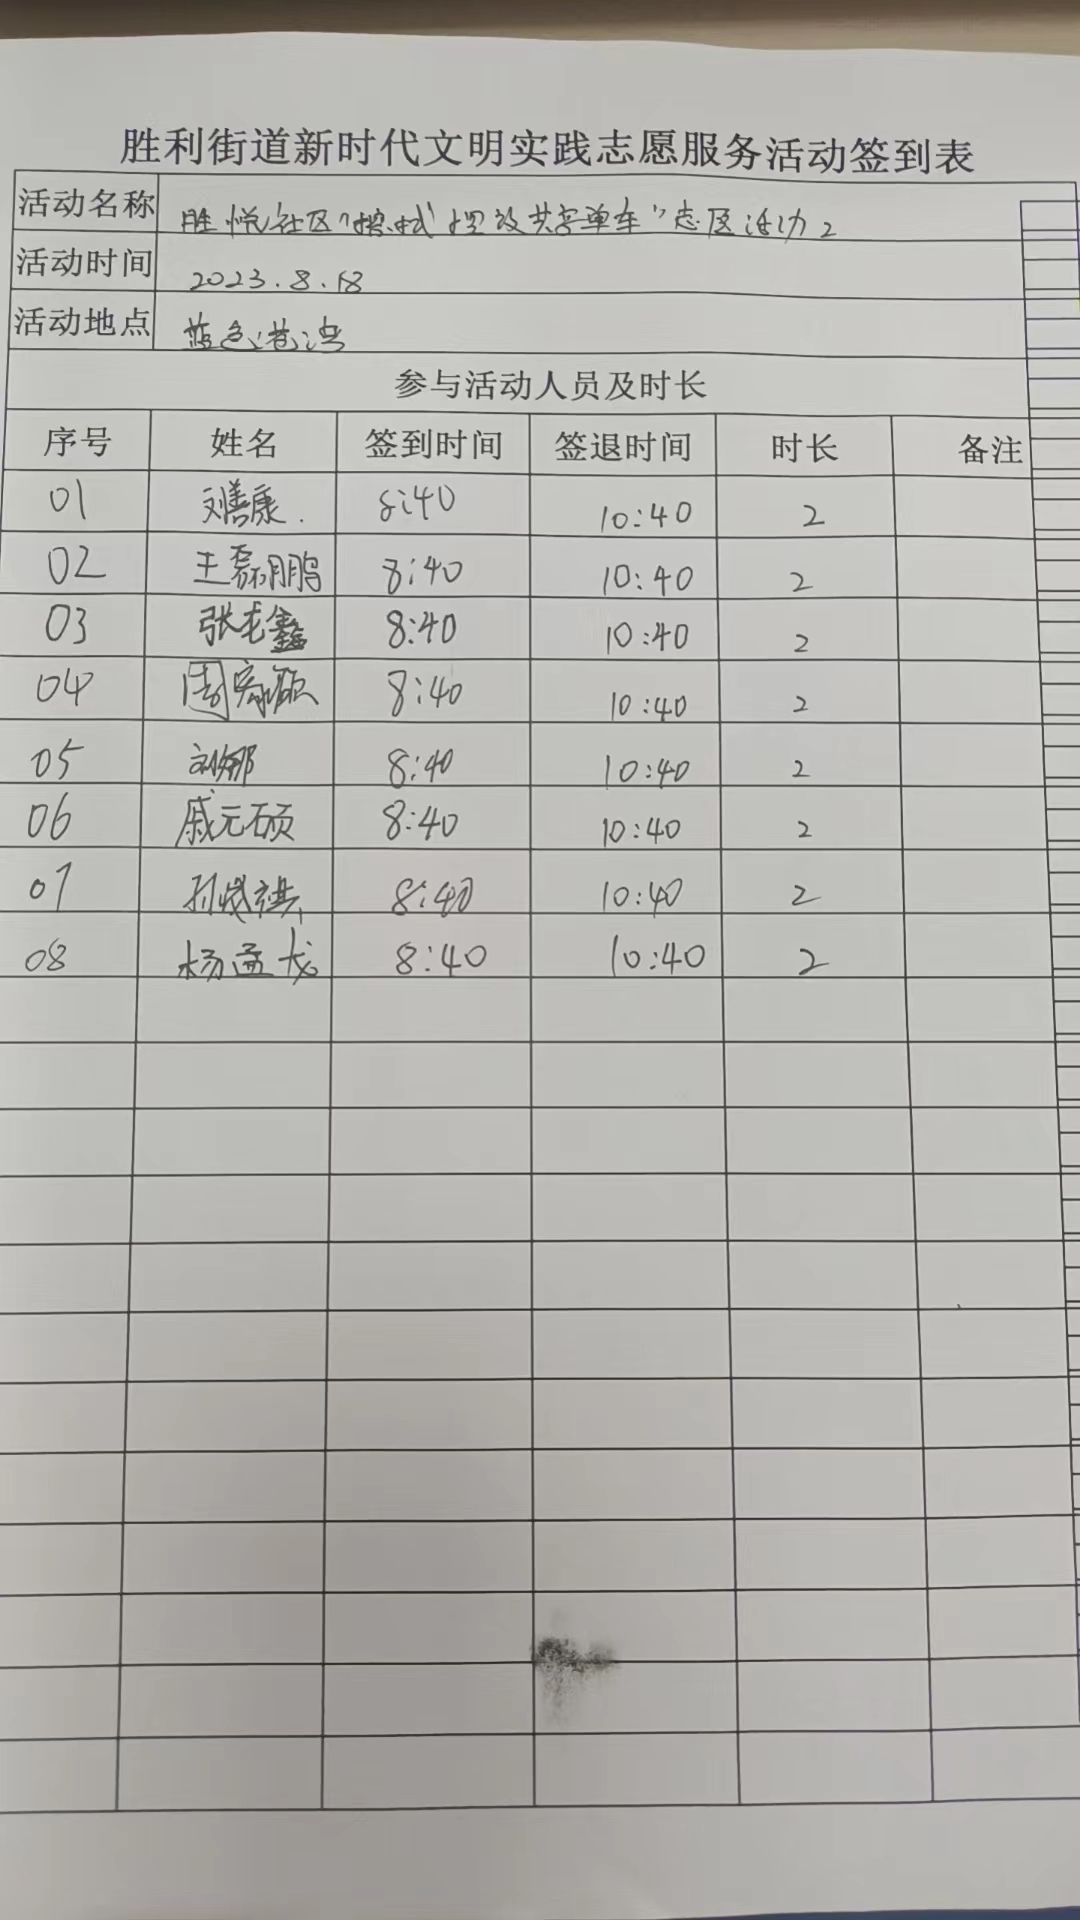 胜利街道新时代文明实践志愿服务活动签到表
活动名称 胜悦社区“擦拭摆放共享单车”志愿活动2
活动时间 2023.8.18
活动地点 蓝色港湾
参与活动人员及时长
序号 姓名 签到时间 签退时间 时长 备注
01 刘善康 8:40 10:40 2
02 王磊鹏 8:40 10:40 2
03 张 鑫 8:40 10:40 2
04 周 硕 8:40 10:40 2
05 刘娜 8:40 10:40 2
06 戚元硕 8:40 10:40 2
07 8:40 10:40 2
08 杨孟龙 8:40 10:40 2